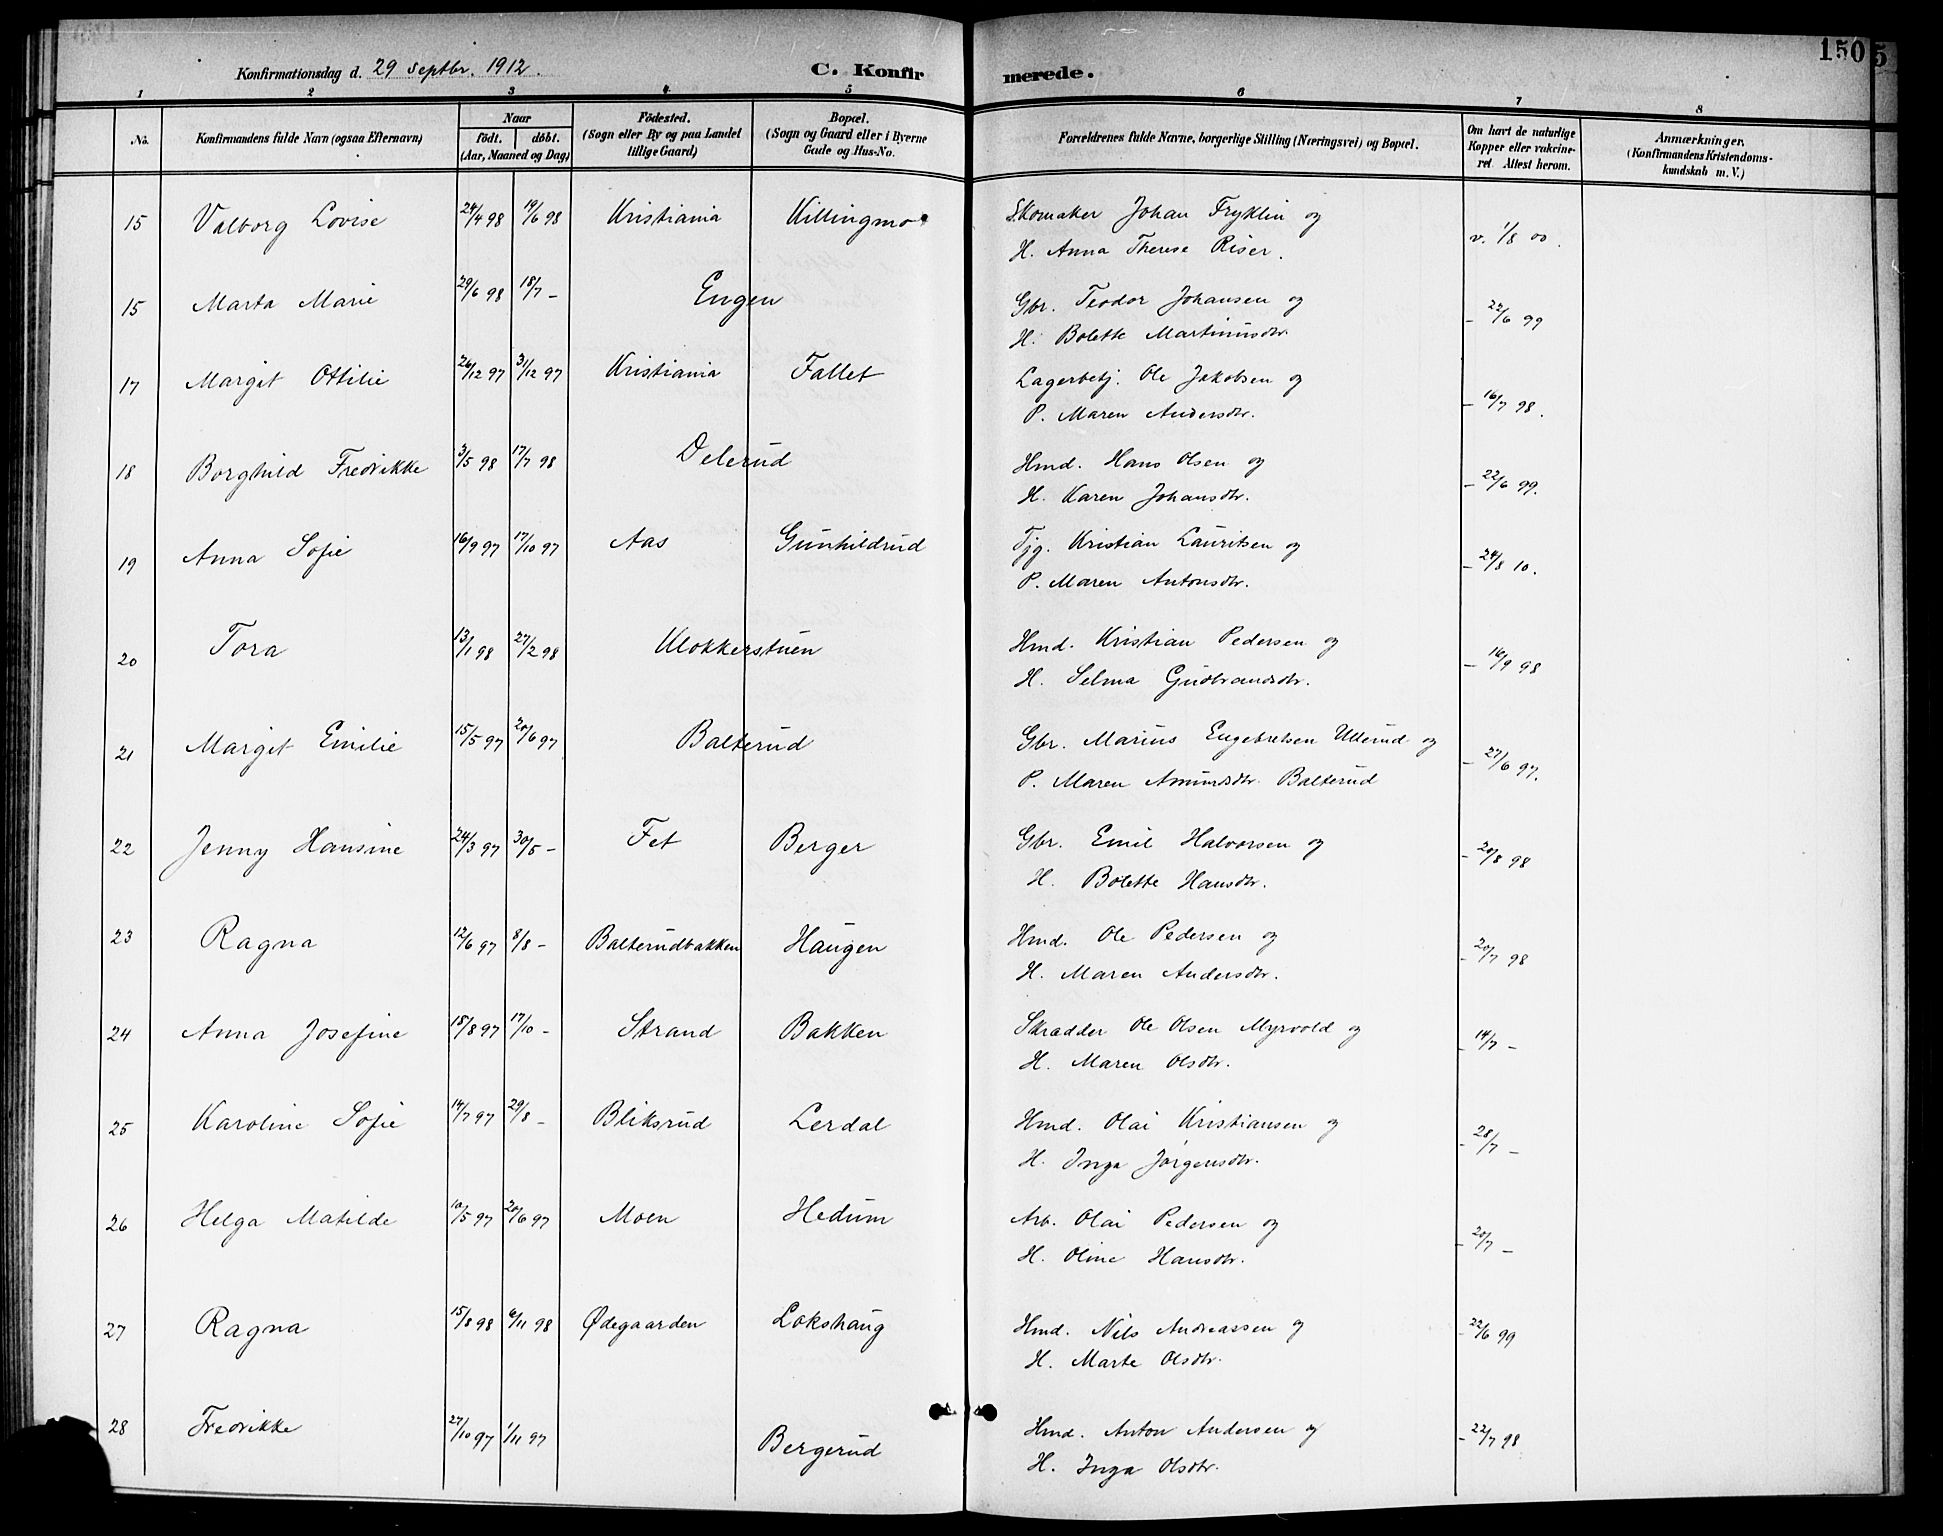 150 5
Konfirmationsdag d. 29 Septbr. 1912. C. Konfir merede.
1 2 3 4 5 6 7 8
No. Konfirmandens fulde Navn (ogsaa Efternavn) Naar födt. döbt. (Aar, Maaned og Dag) Födested. (Sogn eller By og paa Landet tillige Gaard) Bopæl. (Sogn og Gaard eller i Byerne Gade og Hus-No. Forældrenes fulde Navne, borgerlige Stilling (Næringsvei) og Bopæl. Om havt de naturlige Kopper eller vakcineret. Attest herom. Anmærkninger. (Konfirmandens Kristendomskundskab m. V.)
15 Valborg Lovise 24/4 98 19/6 98 Kristiania Killingmo Skomaker Johan Fryklin og
H. Anna Therese Riser. v. 1/8 00.
15 Marta Marie 29/6 98 18/7 – Engen Gbr. Teodor Johansen og
H. Bolette Martinusdtr. – 22/6 99
17 Margit Ottilie 26/12 97 31/12 97 Kristiania Fallet Lagerbetj. Ole Jakobsen og
P. Maren Andersdtr. – 16/7 98.
18 Borghild Fredrikke 3/5 98 17/7 98 Delerud Hmd. Hans Olsen og
H. Karen Johansdtr. – 22/6 99.
19 Anna Sofie 16/9 97 17/10 97 Aas Gunhildrud Tjg. Kristian Lauritsen og
P. Maren Antonsdtr. – 24/8 10.
20 Tora 13/1 98 27/2 98 Klokkerstuen Hmd. Kristian Pedersen og
H. Selma Gudbrandsdtr. – 16/9 98
21 Margit Emilie 15/5 97 20/6 97 Balterud Gbr. Marius Engebretsen Ullerud og
P. Maren Amundsdtr. Balterud – 27/6 97.
22 Jenny Hansine 24/3 97 30/5 – Fet Berger Gbr. Emil Halvorsen og
H. Bolette Hansdtr. – 20/8 98
23 Ragna 12/6 97 8/8 – Balterudbakken Haugen Hmd. Ole Pedersen og
H. Maren Andersdtr. – 20/7 98
24 Anna Josefine 18/8 97 17/10 – Strand Bakken Skrædder Ole Olsen Myrvold og
H. Maren Olsdtr. – 14/7 –
25 Karoline Sofie 14/7 97 29/8 – Bliksrud Lerdal Hmd. Olai Kristiansen og
H. Inga Jörgensdtr. – 28/7 –
26 Helga Matilde 10/5 97 20/6 97 Moen Hedum Arb. Olai Pedersen og
H. Oline Hansdtr. – 20/7 –
27 Ragna 15/8 98 6/11 98 Ødegaarden Lokshaug Hmd. Nils Andreassen og
H. Marte Olsdtr. – 22/6 99
28 Fredrikke 27/10 97 1/11 97 Bergerud Hmd. Anton Andersen og
H. Inga Olsdtr. – 22/7 98